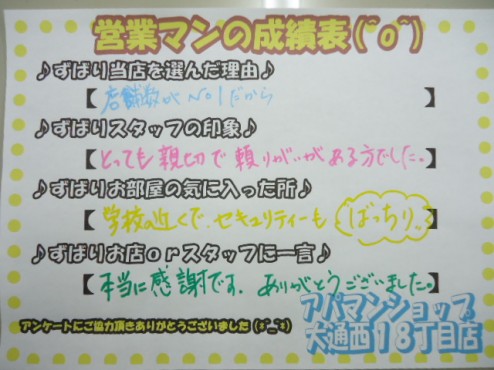 営業マンの成績表(^o^)
♪ずばり当店を選んだ理由♪
【店舗数がNo1だから】
♪ずばりスタッフの印象♪
【とっても親切で頼りがいがある方でした。】
♪ずばりお部屋の気に入った所♪
【学校の近くで、セキュリティーもばっちり】
♪ずばりお店orスタッフに一言♪
【本当に感謝です。ありがとうございました。】
アンケートにご協力頂きありがとうございました(*^_^*)
アパマンショップ
大通西18丁目店